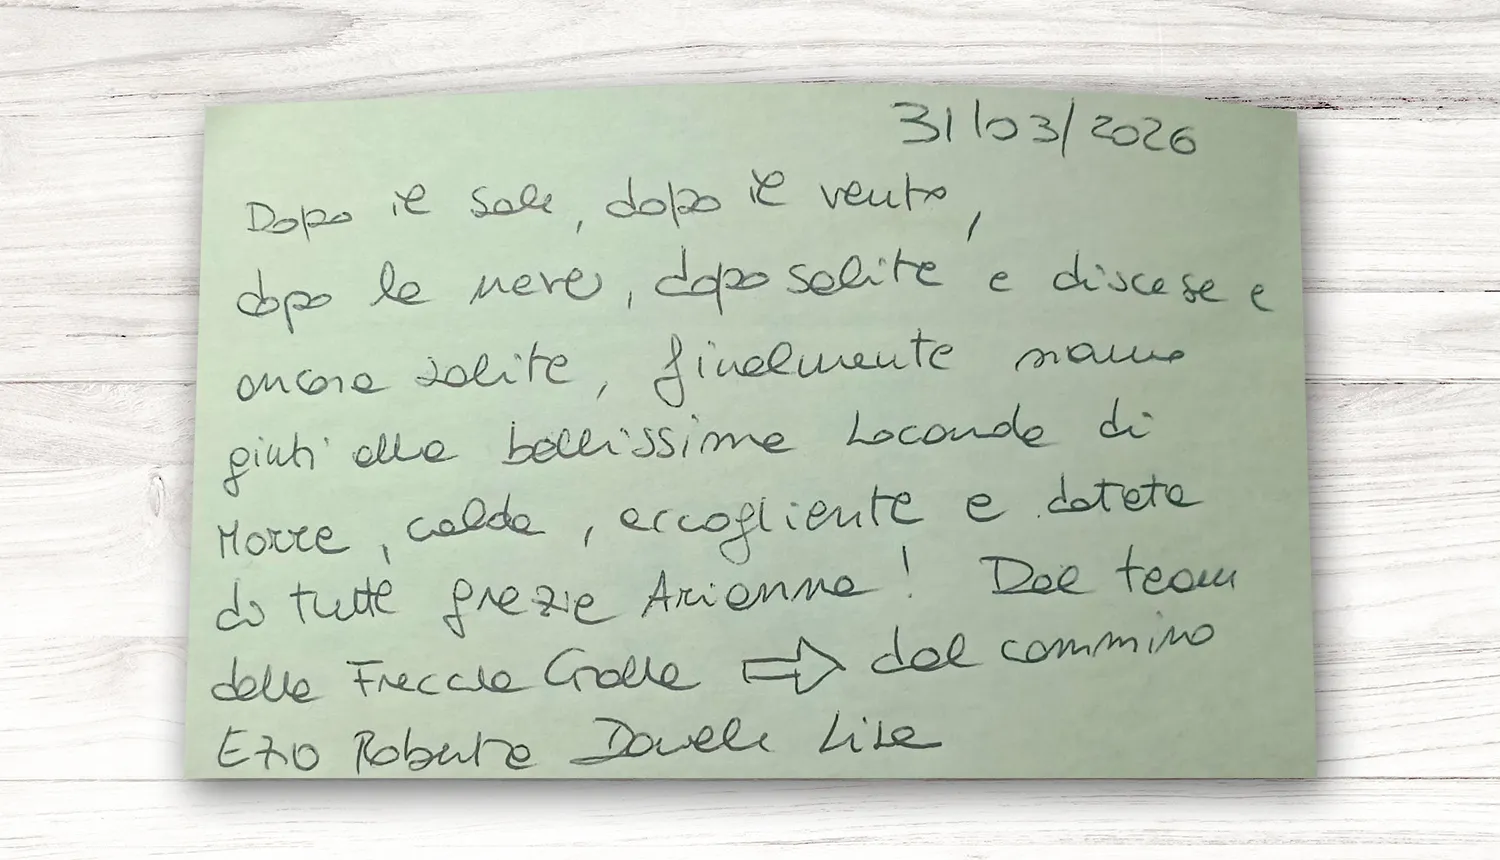 31/03/2026
Dopo il sole, dopo il vento,
dopo la neve, dopo salite e discese e
ancora salite, finalmente siamo
giunti alla bellissima Locanda di
Morre, calda, accogliente e dotata
di tutto grazie Arianna! Dal team
della Freccia Gialla ⇒ dal cammino
Ezio Roberto Daniele Lisa